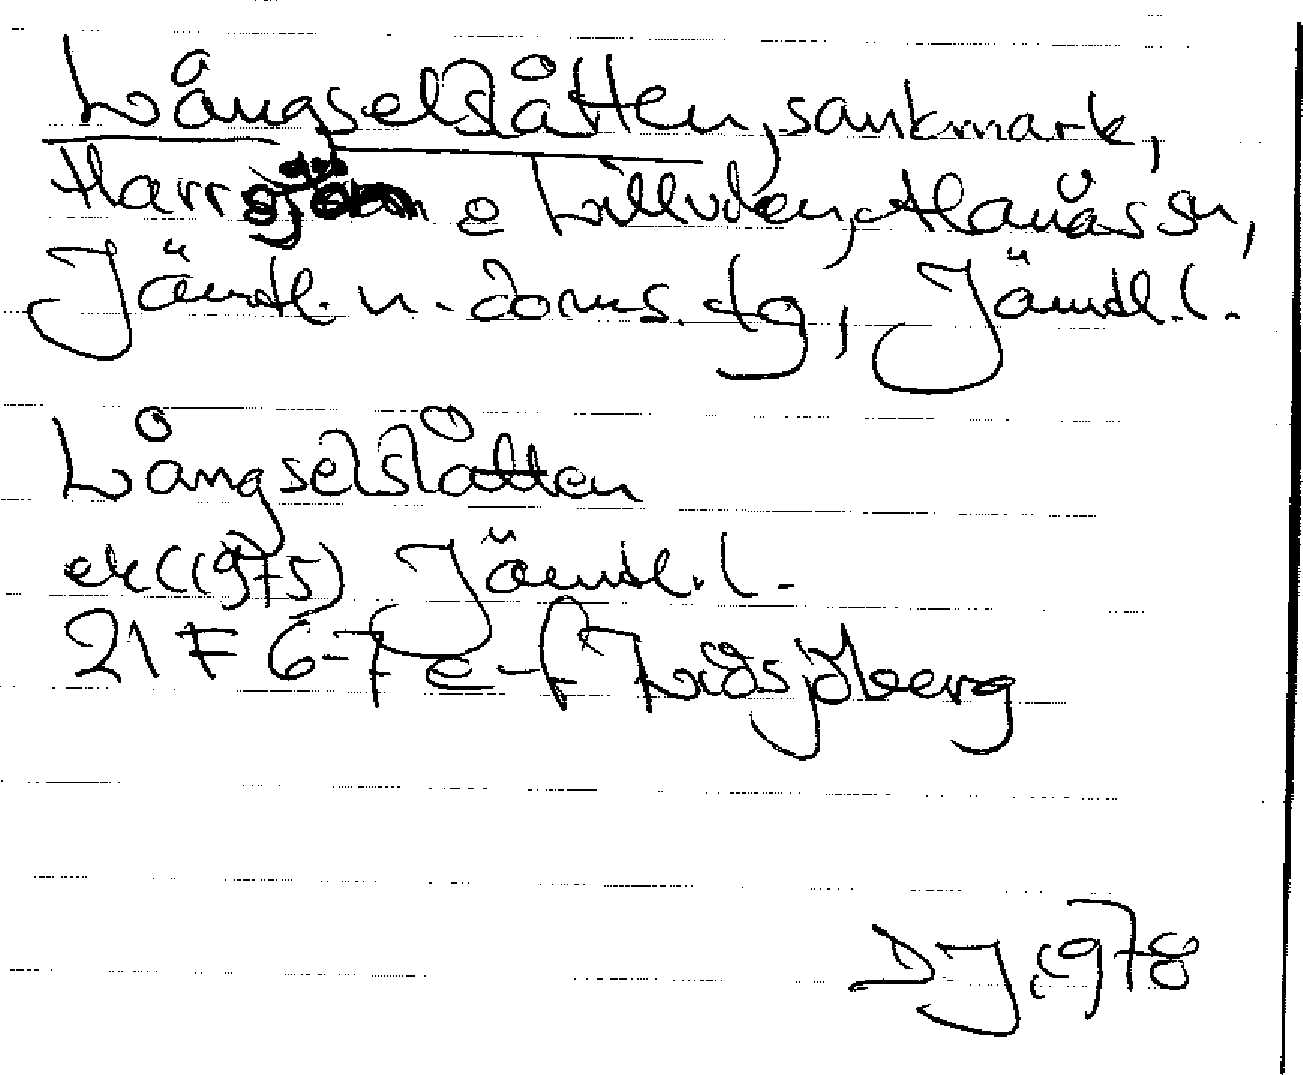 Långselslåtten, sankmark,
Harrsjön o Lillviken, Alanäs sn,
Jämtl. n. doms. tg, Jämtl. l.
Långselslåtten
ek (1975) Jämtl. l.
21 F 6-7 e-f Lidsjöberg
DJ 1978